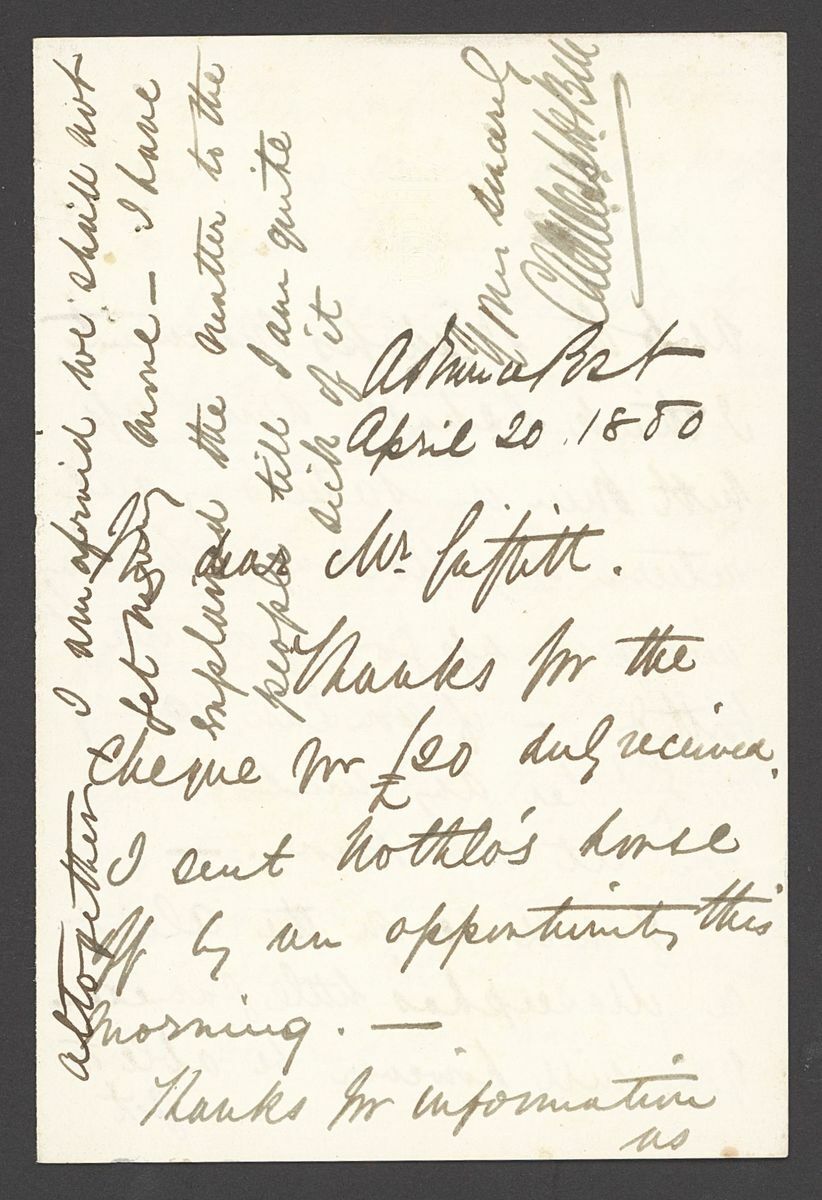 April 20. 1880
My dear Mr.
Thanks for the
cheque for £20 duly received.
I sent Nothlo's horse
off by an opportunity this
morning. —
Thanks for information
as
altogether I am afraid we shall not
get any more — I have
explained the matter to the
people till I am quite
sick of it
Yours sincerely